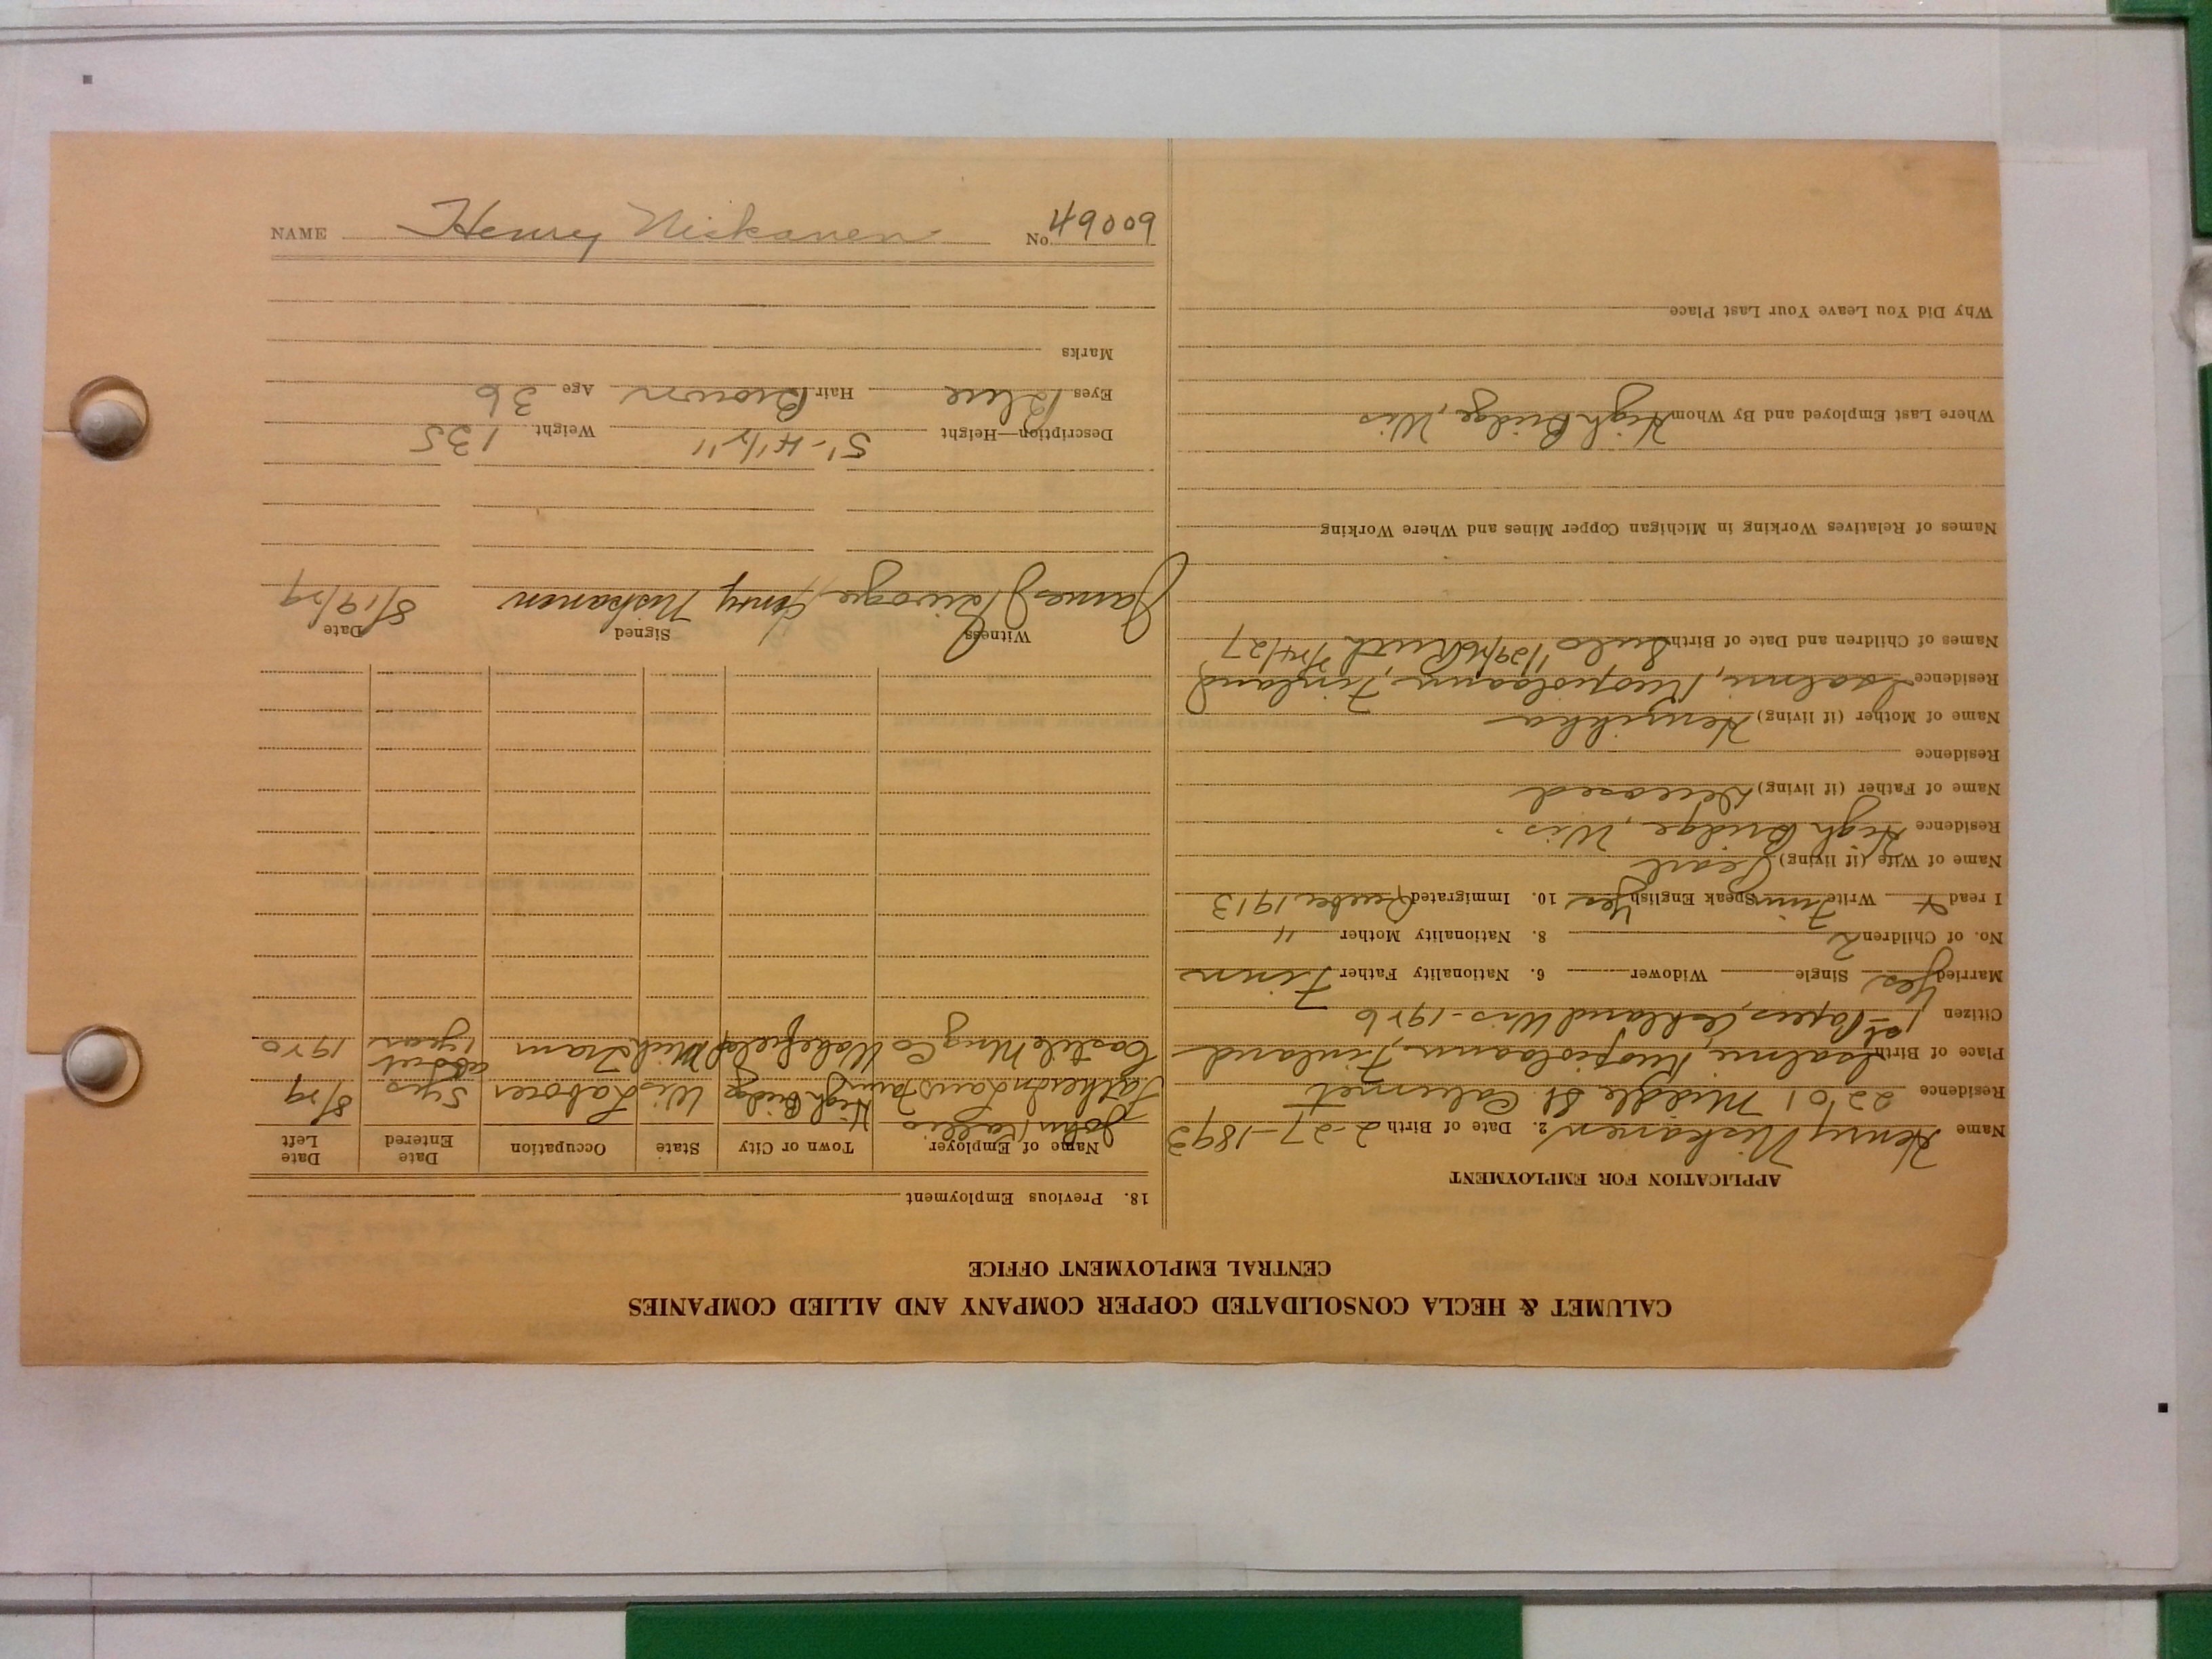 CALUMET & HECLA CONSOLIDATED COPPER COMPANY AND ALLIED COMPANIES
CENTRAL EMPLOYMENT OFFICE
APPLICATION FOR EMPLOYMENT
Name Henry Niskanen 2. Date of Birth 2-27-1893
Residence 2201 Middle St. Calumet
Place of Birth Isalmi, Kuopiolaani, Finland
Citizen 1st Papers, Ashland Wis - 1926
Married Yes Single Widower 6. Nationality Father Finn
No. of Children 2 8. Nationality Mother "
I read & Write Finn Speak English Yes 10. Immigrated 1913
Name of Wife (if living) Pearl
Residence High Bridge, Wis.
Name of Father (if living) Deceased
Residence
Name of Mother (if living)
Residence Isalmi, Kuopiolaani, Finland
Names of Children and Date of Birth 1/29/16 Ruth 7/14/27
Names of Relatives Working in Michigan Copper Mines and Where Working
Where Last Employed and By Whom High Bridge, Wis
Why Did You Leave Your Last Place
18. Previous Employment
Name of Employer Town or City State Occupation Date Entered Date Left
John Kallio
High Bridge Wis Laborer 5 yrs 8/29
Castile Mng Co Wakefield Mich Tram about 1 year 1920
Witness Signed Date
James Henry Niskanen 8/19/29
Description—Height 5'-4 1/2" Weight 135
Eyes Blue Hair Brown Age 36
Marks
NAME Henry Niskanen No. 49009